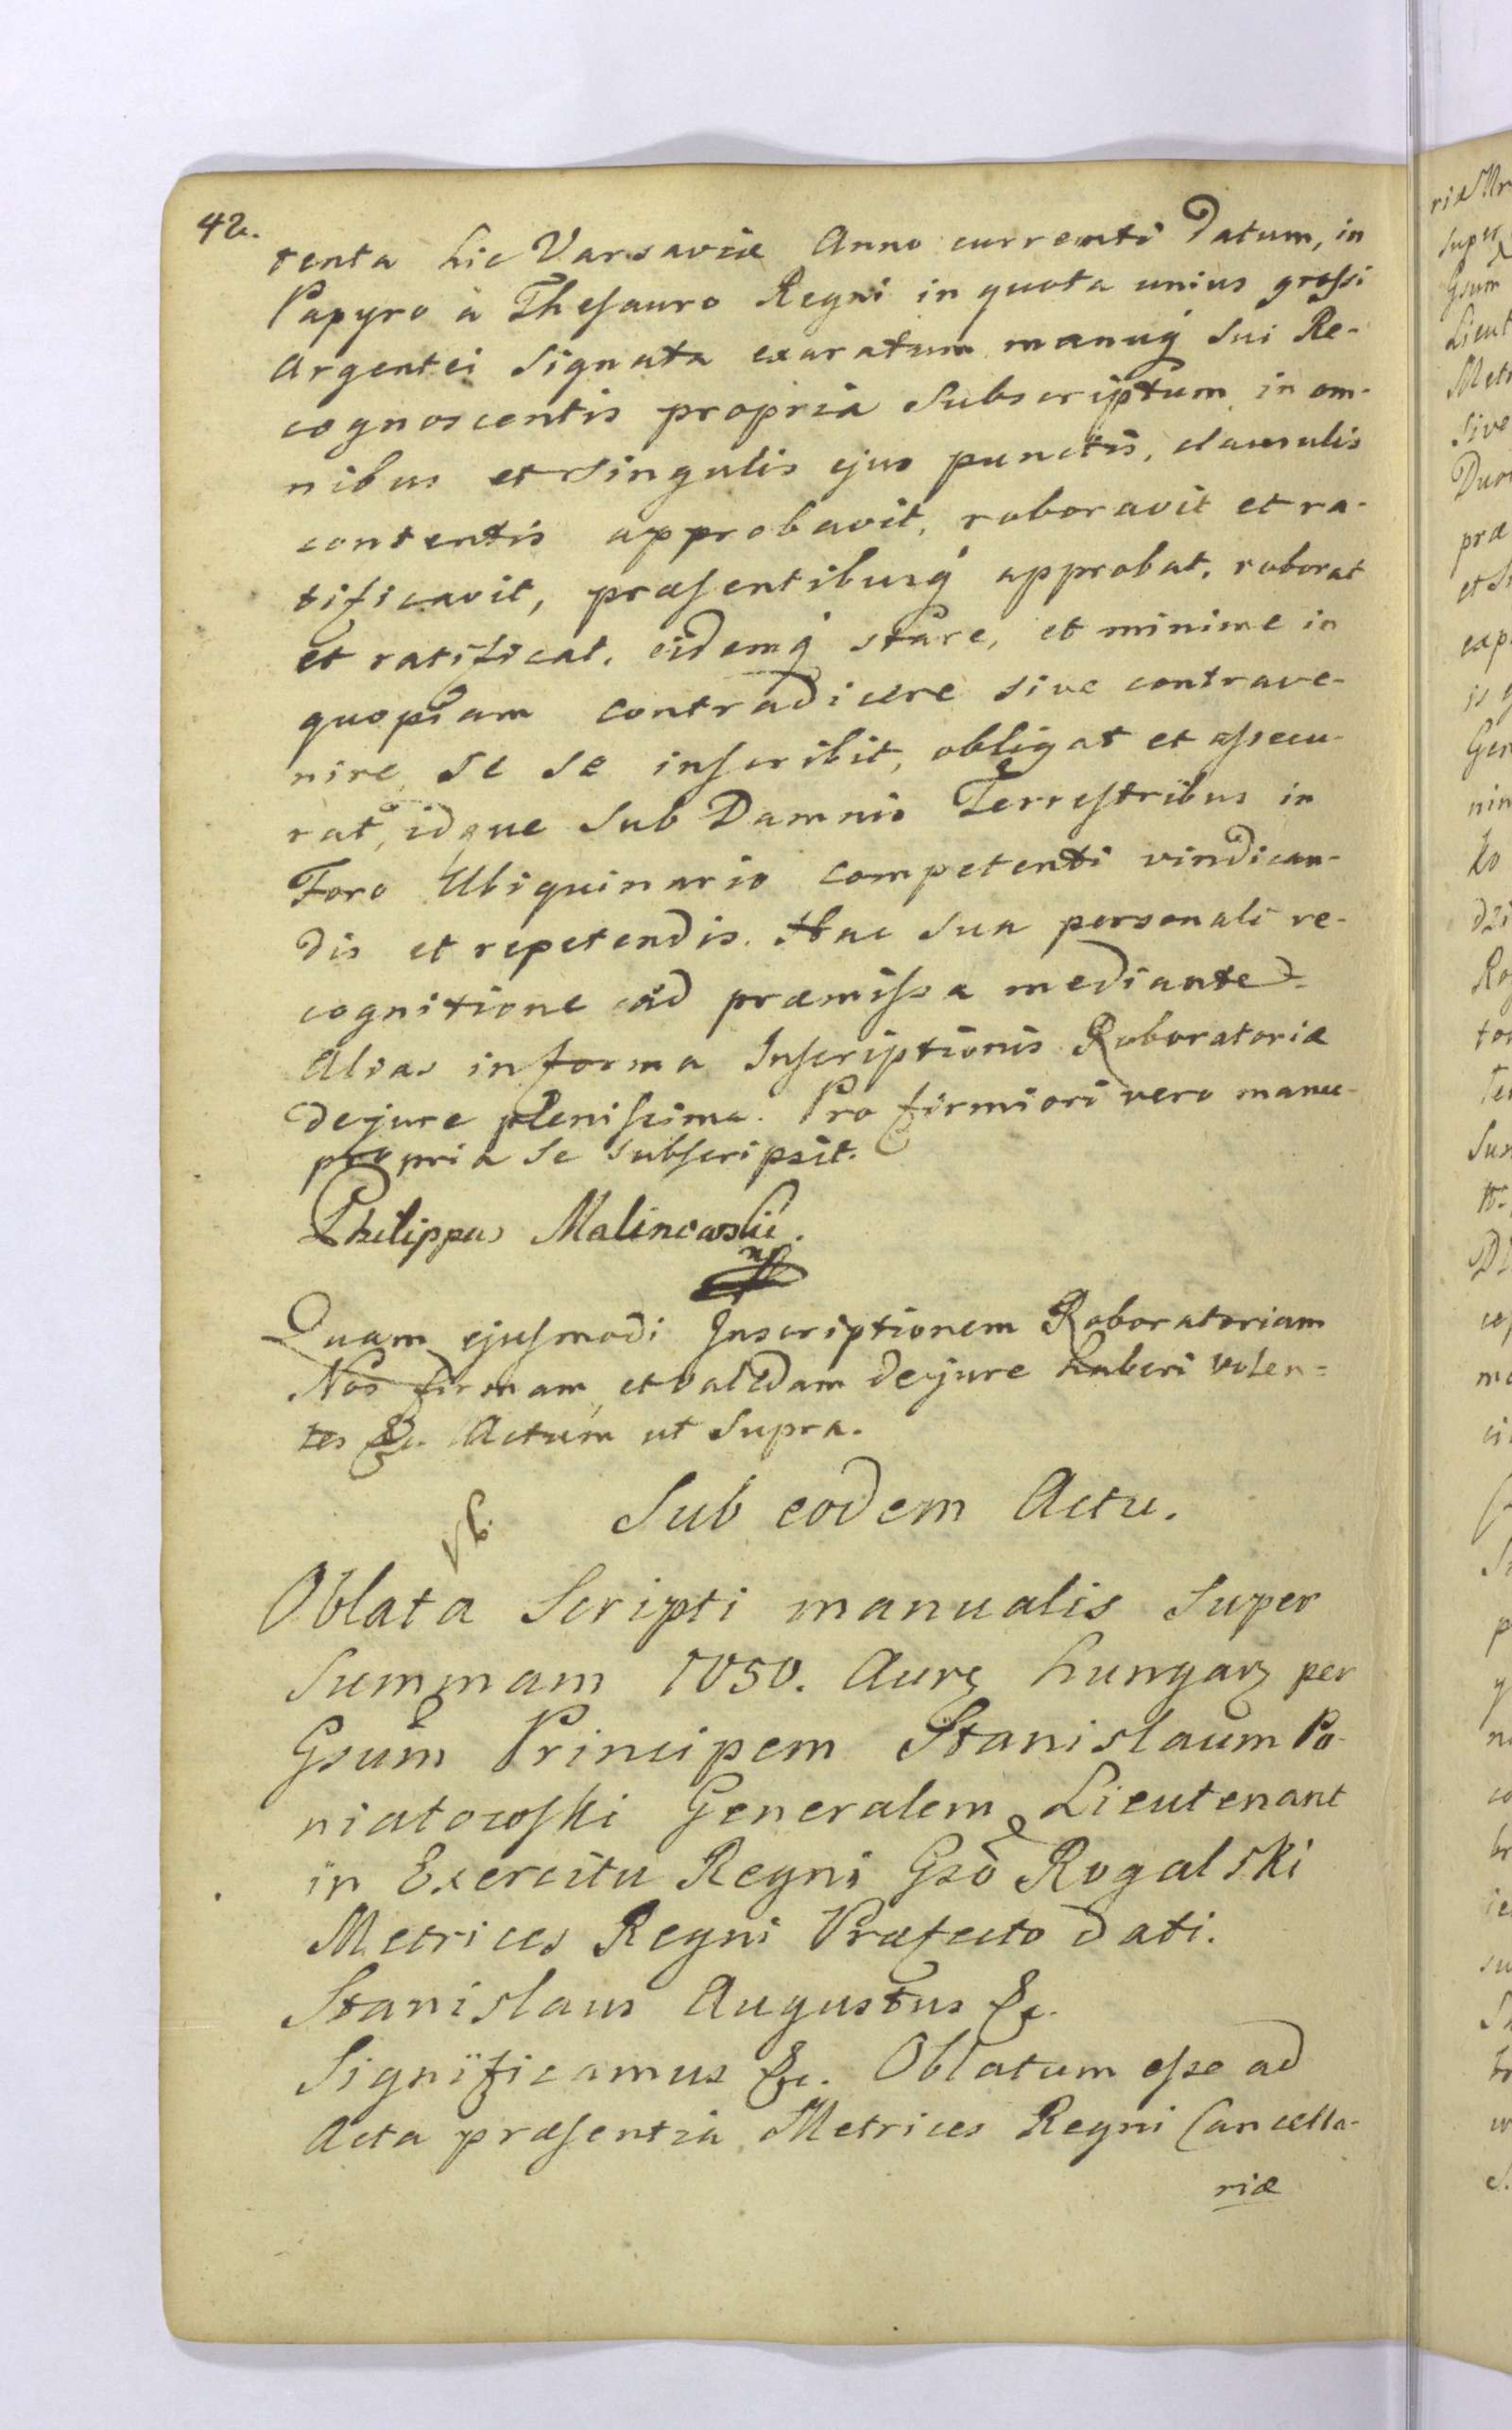 42.
tenta hic Varsaviæ Anno currenti Datum, in
Papyro à Thesauro Regni in quota unius grossi
Argentei Signata exaratum manuq́ Sui Re-
cognoscentis propria Subscriptum in om-
nibus et Singulis ejus punctis, clausulis
contentis approbavit, roboravit et ra-
tificavit, præsentibusq́ approbat, roborat
et ratificat, eidemq́ stare, et minime in
quopiam contradicere sive contrave-
nire Se Se inscribit, obligat et assecu-
rat, idque Sub Damnis Terrestribus in
Foro Ubiquinario competenti vindican-
dis et repetendis. Hac Sua personali re-
cognitione ad præmissa mediante
Alias in forma Inscriptionis Roboratoriæ
dejure plenissima. Pro firmiori vero manu-
propria Se Subscripsit.
Philippus Malinowski
mp
Quam ejusmodi Inscriptionem Roboratoriam
Nos firmam et validam dejure haberi volen=
tes &c. Actum ut Supra.
Sub eodem Actu.
Oblata Scripti manualis Super
Summam 1050. Aurͤ hungarͤ per
Gsum Principem Stanislaum Po-
niatowski Generalem Lieutenant
in Exercitu Regni Gso Rogalski
Metrices Regni Præfecto dati.
Stanislaus Augustus &c.
Significamus &c. Oblatum esse ad
Acta præsentia Metrices Regni Cancella-
riæ